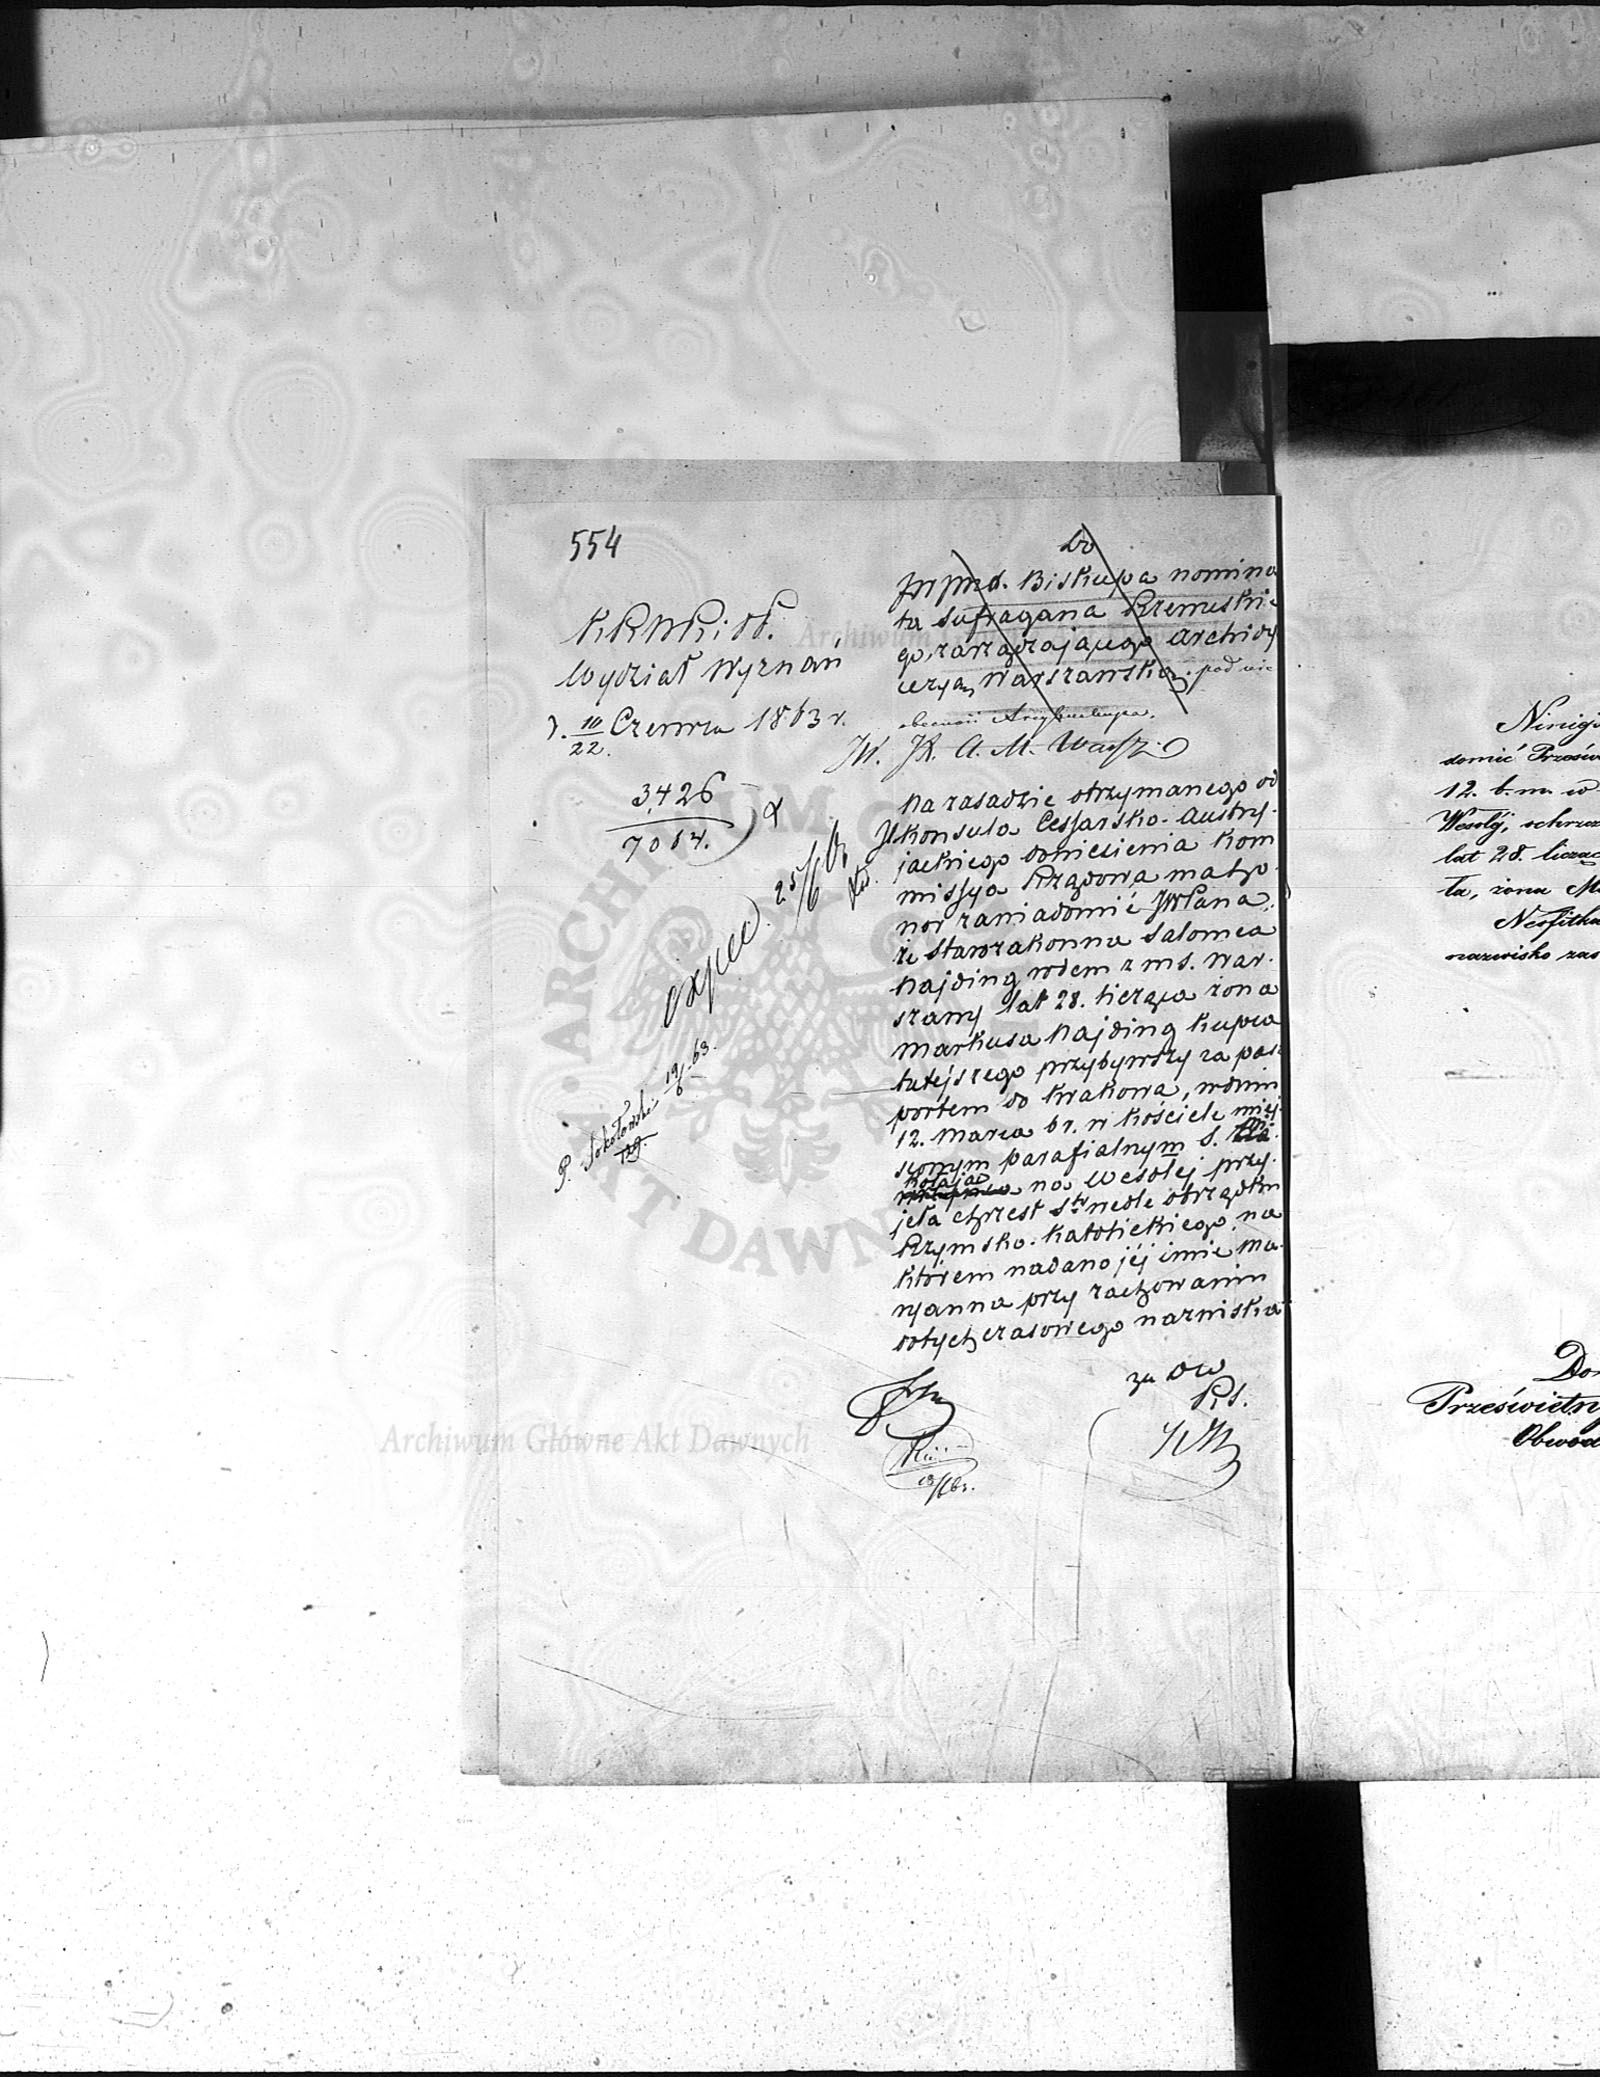 554
KRWRiOP.
Wydział Wyznań
D. 10/22. Czerwca 1863 r.
3,426
7014.
exped. 25/6 63
P. Sokołowski 19/6 63.
Do
JW JXd. Biskupa nomina
ta Sufragana
go, zarządzającego Archidy
ecezyą Warszawską, pod nie
obecność Arcybiskupa.
W. JX. A. M. Warsz.
Na zasadzie otrzymanego od
JKonsula Cessarsko-Austry-
jackiego doniesienia Kom
missya Rządowa ma ho-
nor zawiadomić JWPana,
że starozakonna Salomea
Najding rodem z m s. War-
szawy lat 28. licząca żona
Markusa Najding kupca
tutejszego przybywszy za pas-
portem do Krakowa, w dniu
12. Marca b r. w kościele miej-
scowym parafialnym S. Mi
kołaja na Wesołej przy-
jęła chrzest Sty wedle obrządku
Rzymsko-Katolickiego, na
którem nadano jéj imie Ma-
ryanna przy zachowaniu
dotychczasowego nazwiska
za DW
18/6 63.
Niniejs
domić Prześwi
12. b. m. w
Wesoléj, ochrzc
lat 28. licząc
ta, żona Ma
Neofitka
nazwisko zas
Do
Prześwietn
Obwod
Archiwum Główne Akt Dawnych
ARCHIWUM GŁÓWNE AKT DAWNYCH